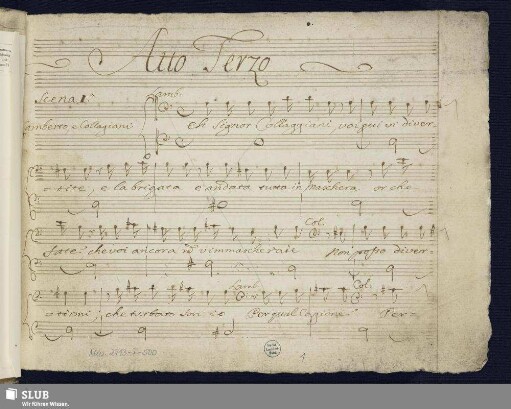 Atto Terzo
Scena 1.a
Lamb.
Lamberto, e Collagiani
Eh Signor Collaggiani, voi qui vi diver-
-tite, e la brigata è andata tutta in maschera or che
fate? che voi ancora
Col.
Non posso diver-
-tirmi, che turbato son io
Lamb.
Per qual cagione?
Col.
Per-
Mus. 2793-F-500
SLUB
Wir führen Wissen.